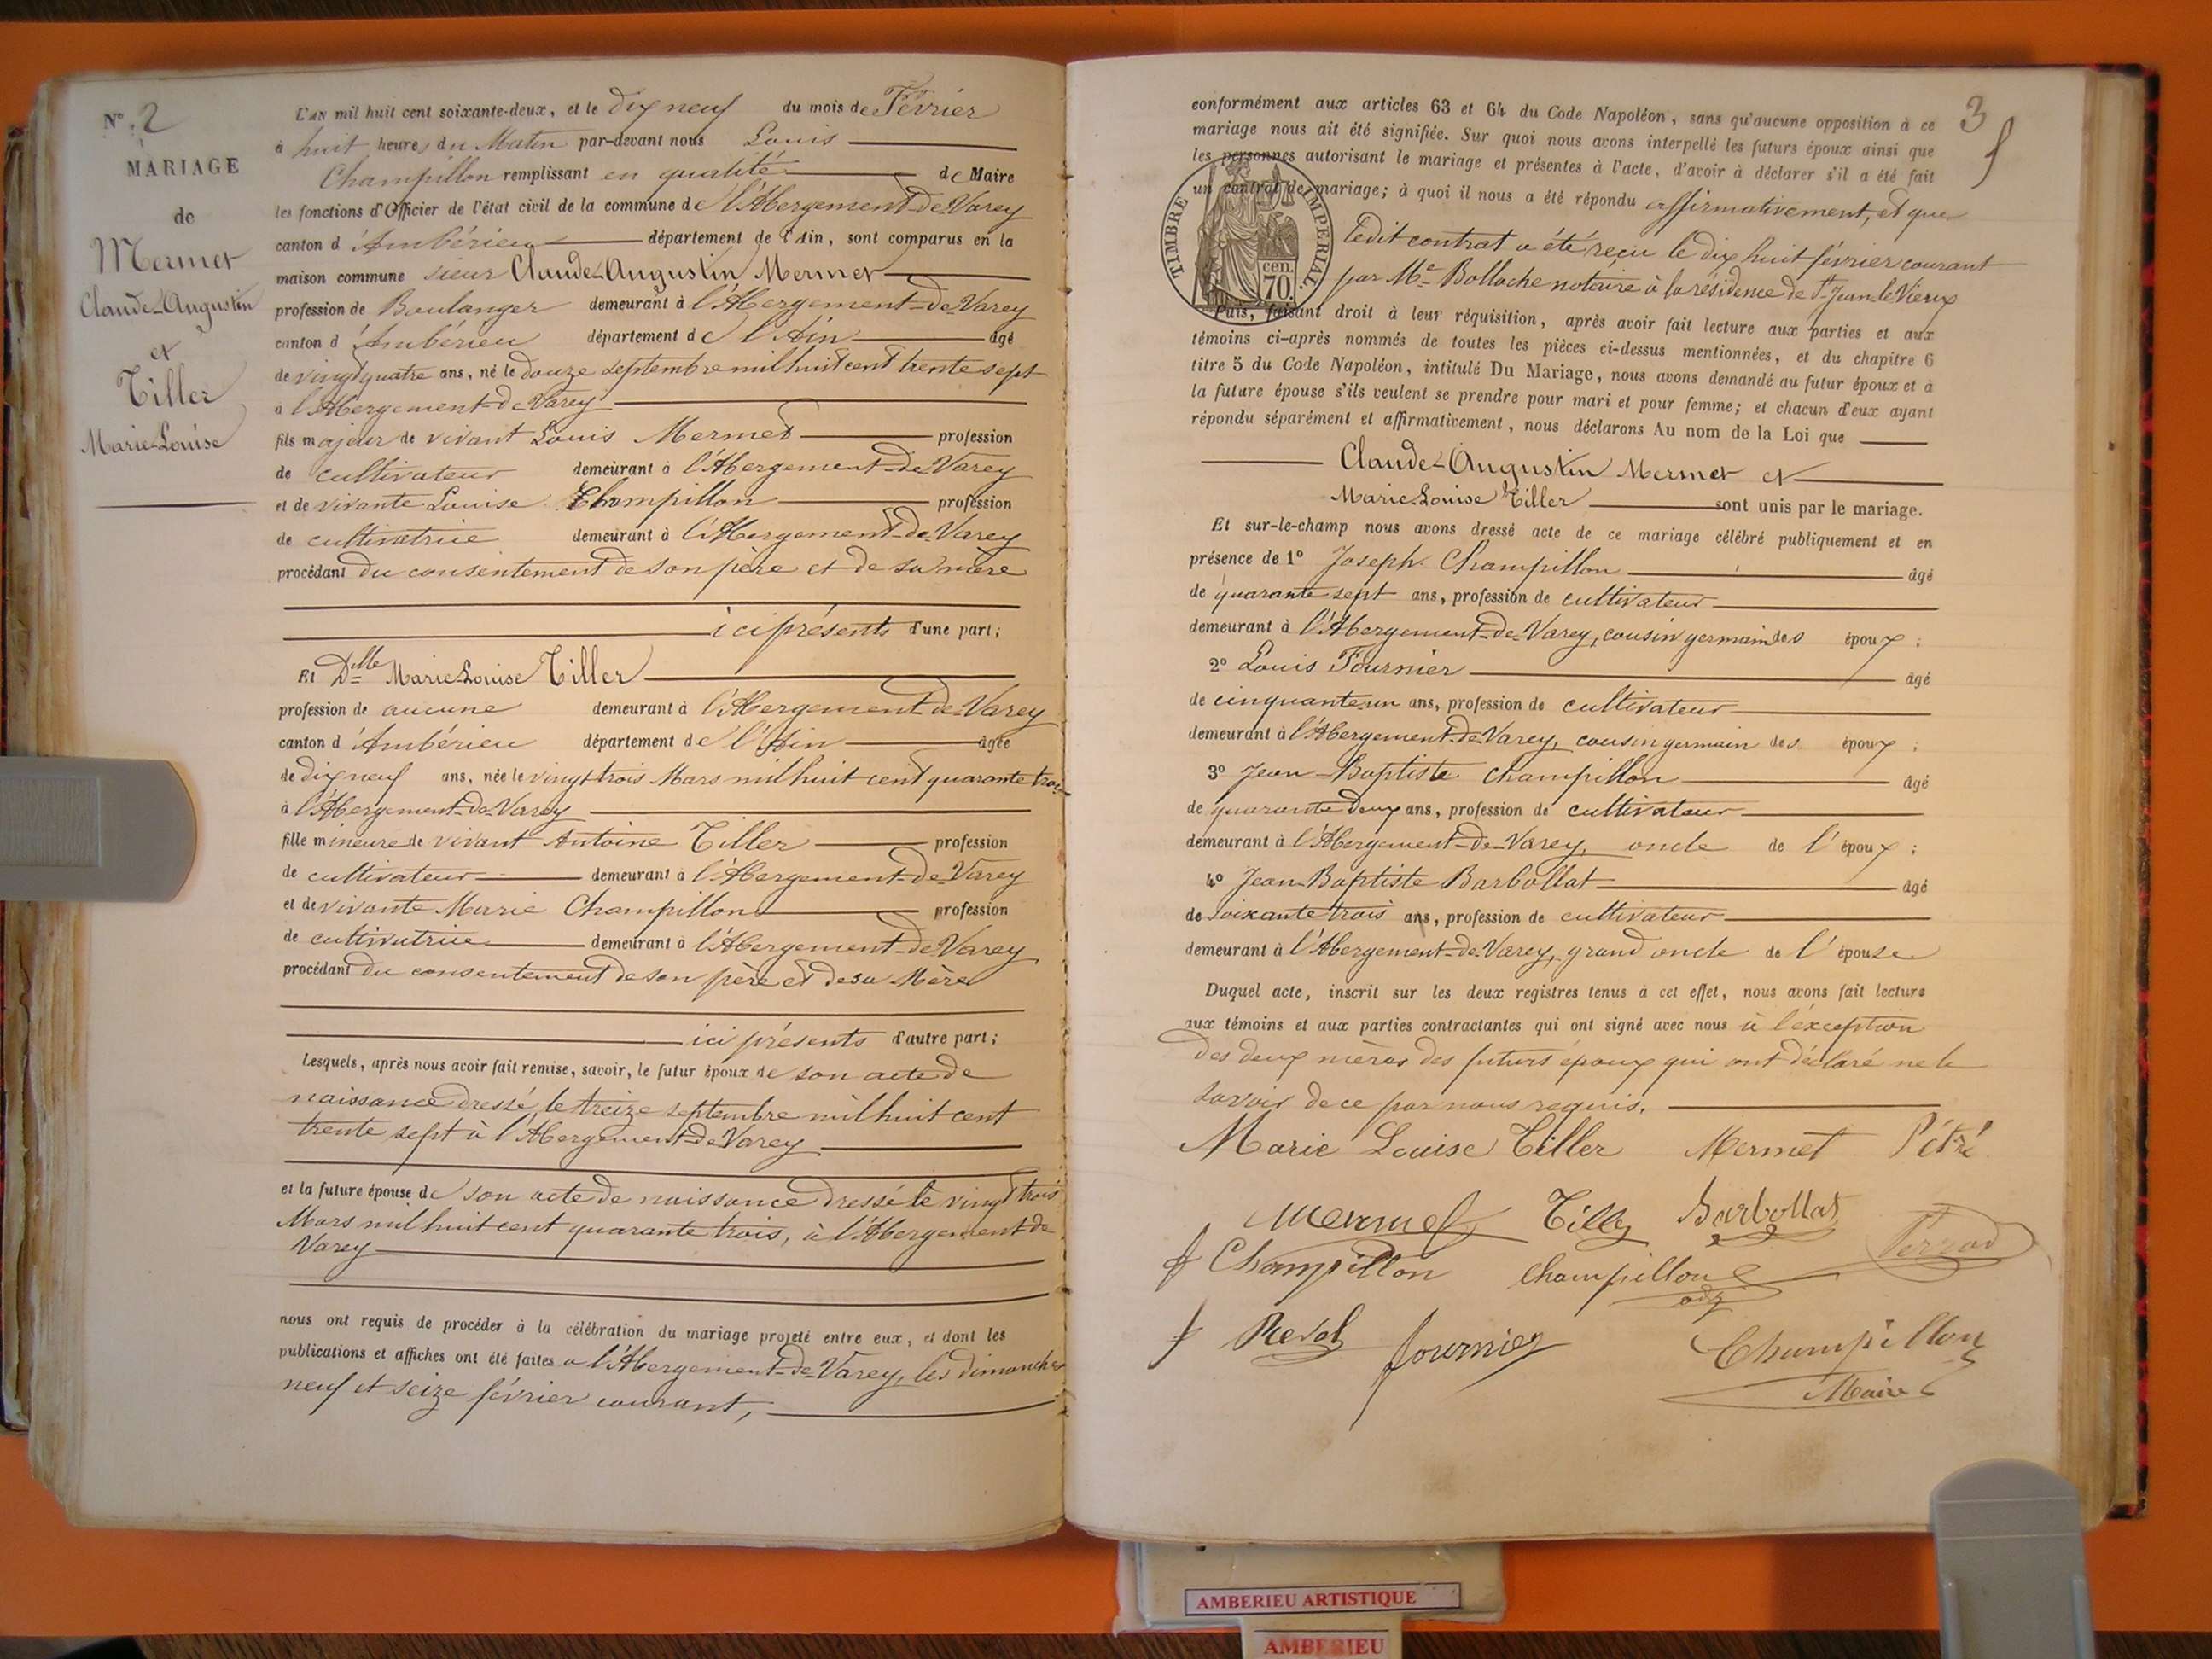 N° 2
MARIAGE
de
Mermet
Claude-Augustin
et
Tiller
Marie-Louise
L'AN mil huit cent soixante-deux, et le dix neuf du mois de Février
à huit heures du Matin par-devant nous Louis
Champillon remplissant en qualité de Maire
les fonctions d'Officier de l'état civil de la commune de l'Abergement-de-Varey
canton d'Ambérieu département de l'Ain, sont comparus en la
maison commune sieur Claude-Augustin Mermet
profession de Boulanger demeurant à l'Abergement-de-Varey
canton d'Ambérieu département de l'Ain âgé
de vingt quatre ans, né le douze septembre mil huit cent trente sept
à l'Abergement-de-Varey
fils majeur de vivant Louis Mermet profession
de cultivateur demeurant à l'Abergement-de-Varey
et de vivante Louise Champillon profession
de cultivatrice demeurant à l'Abergement-de-Varey
procédant du consentement de son père et de sa mère
ici présents d'une part;
Et Dlle Marie-Louise Tiller
profession de aucune demeurant à l'Abergement-de-Varey
canton d'Ambérieu département de l'Ain âgée
de dix neuf ans, née le vingt trois Mars mil huit cent quarante trois
à l'Abergement-de-Varey
fille mineure de vivant Antoine Tiller profession
de cultivateur demeurant à l'Abergement-de-Varey
et de vivante Marie Champillon profession
de cultivatrice demeurant à l'Abergement-de-Varey
procédant du consentement de son père et de sa Mère
ici présents d'autre part;
Lesquels, après nous avoir fait remise, savoir, le futur époux de son acte de
naissance dressé le treize septembre mil huit cent
trente sept à l'Abergement-de-Varey
et la future épouse de son acte de naissance dressé le vingt trois
Mars mil huit cent quarante trois, à l'Abergement-de
Varey
nous ont requis de procéder à la célébration du mariage projeté entre eux, et dont les
publications et affiches ont été faites à l'Abergement-de-Varey, les dimanches
neuf et seize février courant,
3
conformément aux articles 63 et 64 du Code Napoléon, sans qu'aucune opposition à ce
mariage nous ait été signifiée. Sur quoi nous avons interpellé les futurs époux ainsi que
les personnes autorisant le mariage et présentes à l'acte, d'avoir à déclarer s'il a été fait
un contrat de mariage; à quoi il nous a été répondu affirmativement, et que
TIMBRE IMPERIAL.
cen.
70.
ledit contrat a été reçu le dix huit février courant
par Me Bollache notaire à la résidence de St Jean-le-Vieux
Puis, faisant droit à leur réquisition, après avoir fait lecture aux parties et aux
témoins ci-après nommés de toutes les pièces ci-dessus mentionnées, et du chapitre 6
titre 5 du Code Napoléon, intitulé Du Mariage, nous avons demandé au futur époux et à
la future épouse s'ils veulent se prendre pour mari et pour femme; et chacun d'eux ayant
répondu séparément et affirmativement, nous déclarons Au nom de la Loi que
Claude-Augustin Mermet et
Marie-Louise Tiller sont unis par le mariage.
Et sur-le-champ nous avons dressé acte de ce mariage célébré publiquement et en
présence de 1° Joseph Champillon âgé
de quarante sept ans, profession de cultivateur
demeurant à l'Abergement-de-Varey, cousin germain des époux;
2° Louis Fournier âgé
de cinquante-un ans, profession de cultivateur
demeurant à l'Abergement-de-Varey, cousin germain des époux;
3° Jean-Baptiste Champillon âgé
de quarante deux ans, profession de cultivateur
demeurant à l'Abergement-de-Varey, oncle de l'époux;
4° Jean-Baptiste Barbollat âgé
de soixante trois ans, profession de cultivateur
demeurant à l'Abergement-de-Varey, grand oncle de l'épouse
Duquel acte, inscrit sur les deux registres tenus à cet effet, nous avons fait lecture
aux témoins et aux parties contractantes qui ont signé avec nous à l'exception
des deux mères des futurs époux qui ont déclaré ne le
savoir de ce par nous requis.
Marie Louise Tiller Mermet Pétré
Mermet Tiller Barbollat
Champillon Champillon adj Perrad
Reval fournier Champillon
Maire
AMBERIEU ARTISTIQUE
AMBERIEU